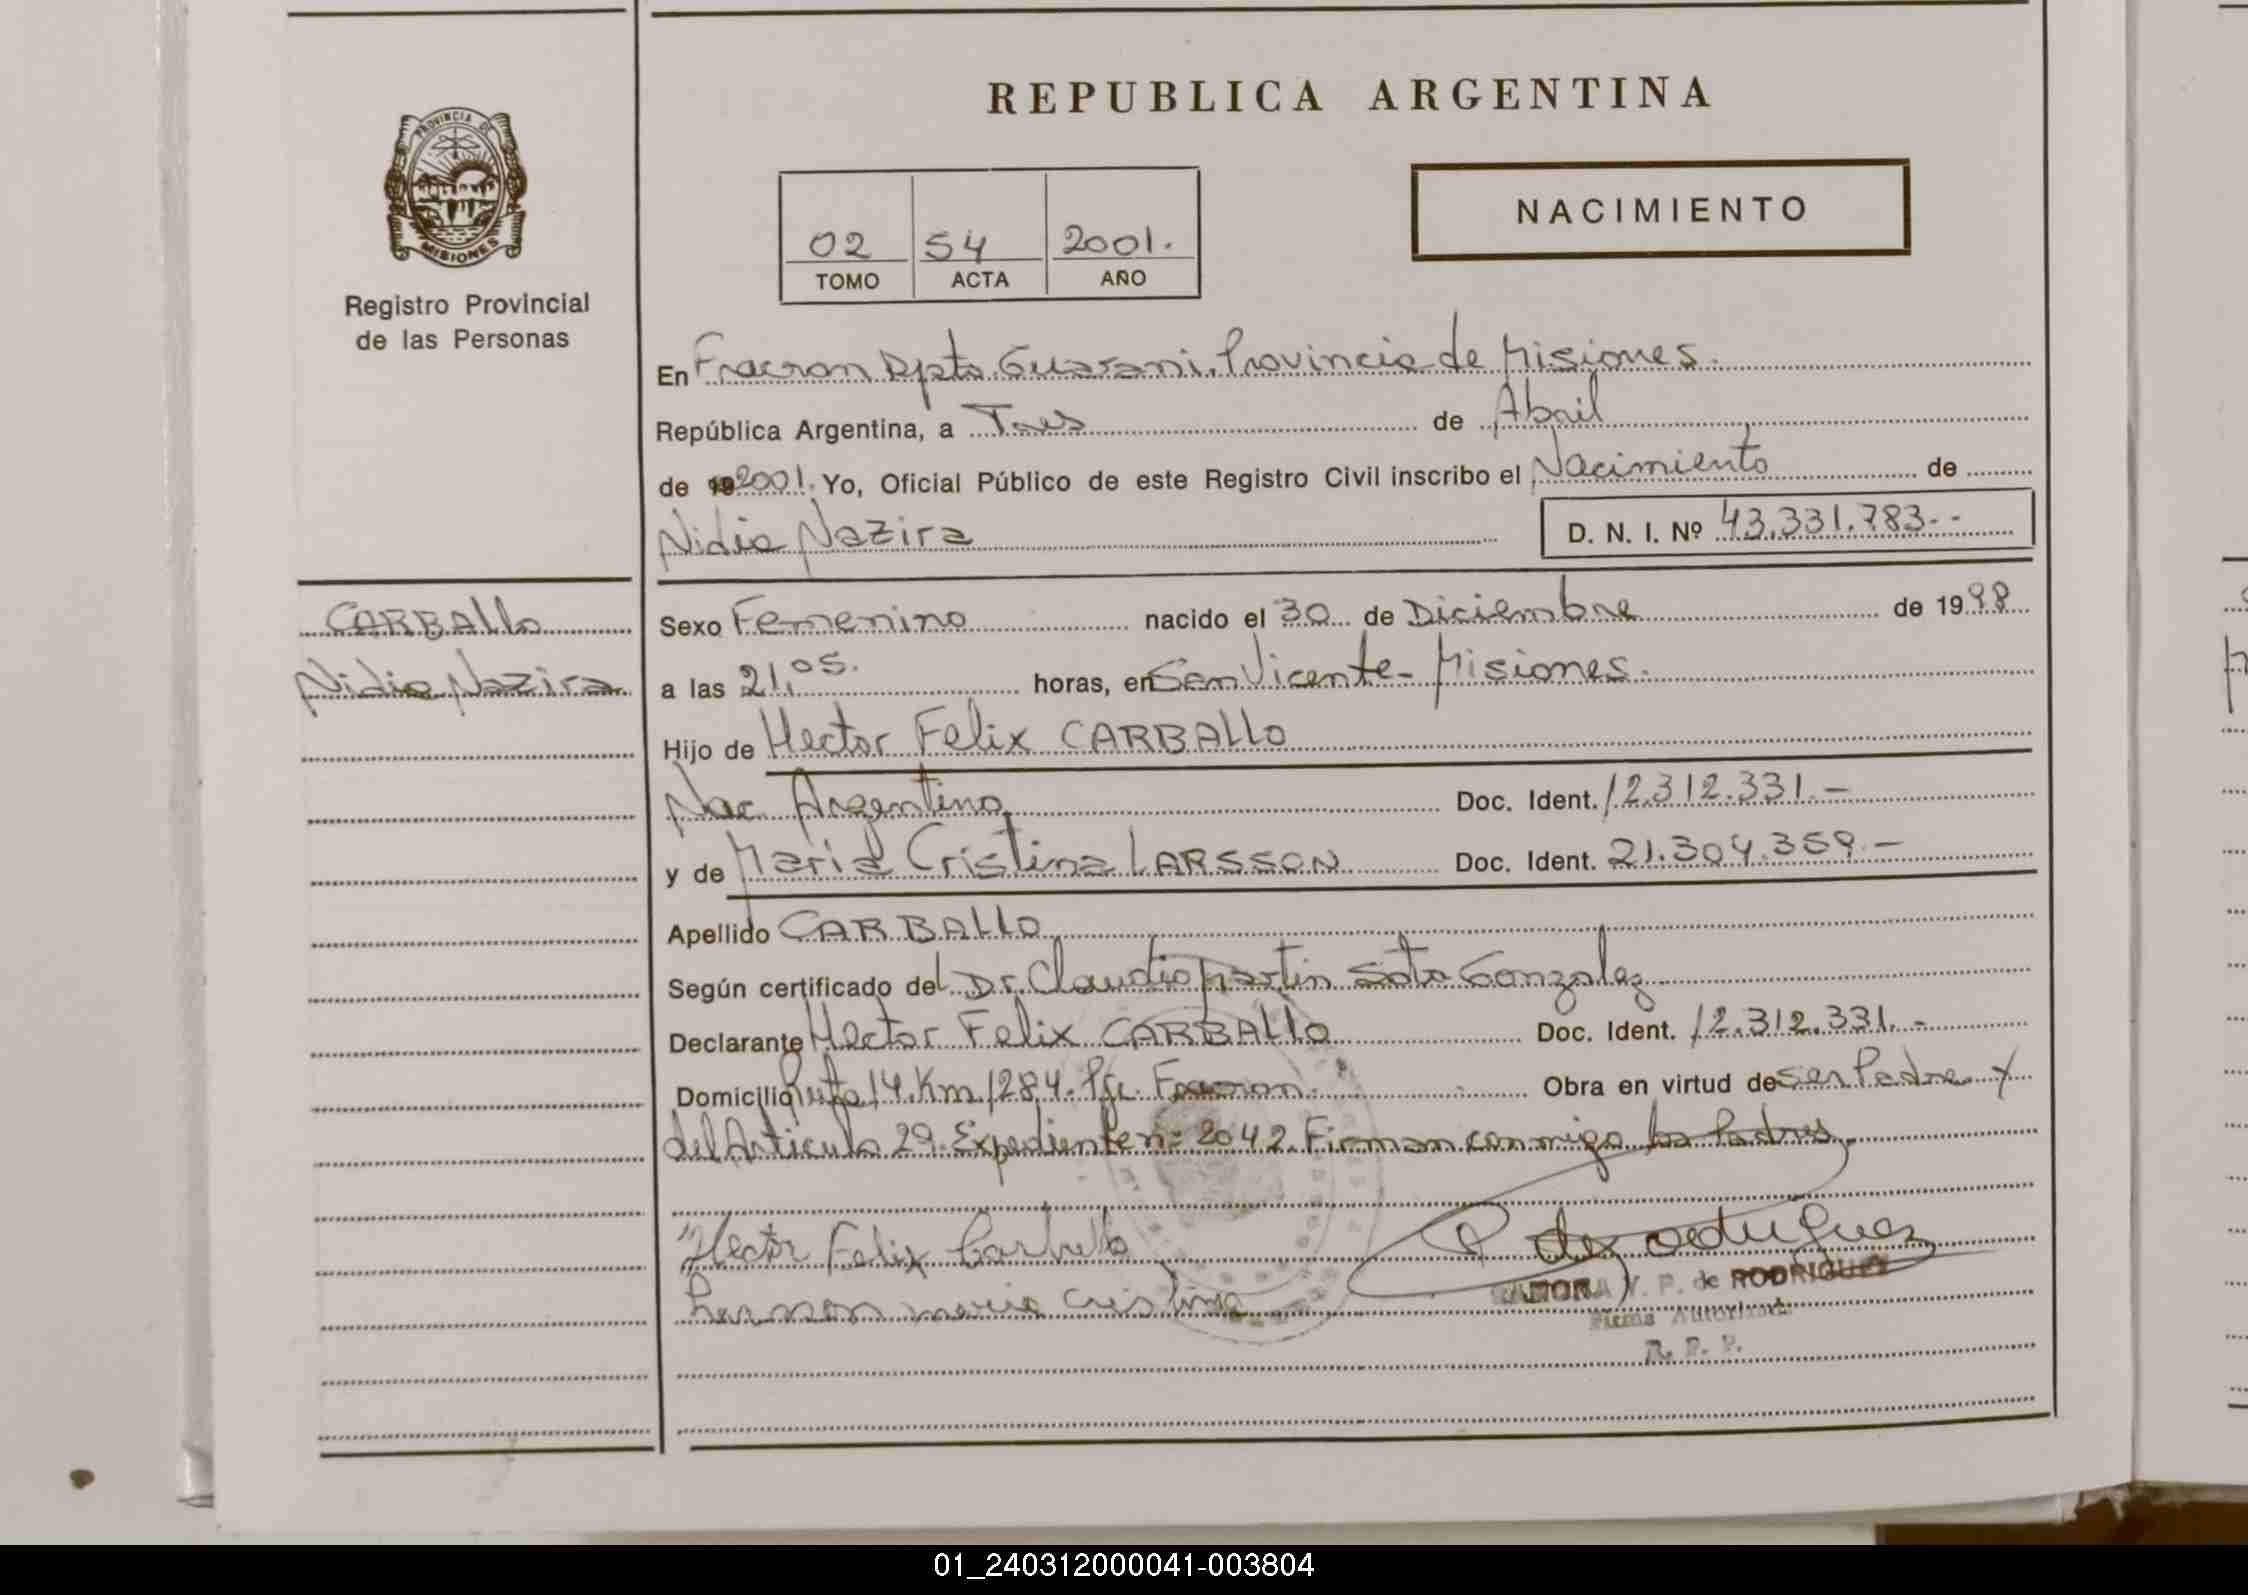 REPUBLICA ARGENTINA
PROVINCIA DE
MISIONES
Registro Provincial
de las Personas
02 54 2001.
TOMO ACTA AÑO
NACIMIENTO
En Fracran Dpto. Guarani. Provincia de Misiones.
República Argentina, a Tres de Abril
de 19 2001. Yo, Oficial Público de este Registro Civil inscribo el Nacimiento de
Nidia Nazira D. N. I. Nº 43.331.783--
CARBALLO
Nidia Nazira
Sexo Femenino nacido el 30 de Diciembre de 1998
a las 21,05. horas, en San Vicente - Misiones.
Hijo de Hector Felix CARBALLO
Nac. Argentino Doc. Ident. 12.312.331.-
y de Maria Cristina LARSSON Doc. Ident. 21.304.359.-
Apellido CARBALLO
Según certificado del Dr. Claudio Martin Soto Gonzalez
Declarante Hector Felix CARBALLO Doc. Ident. 12.312.331.-
Domicilio Ruta 14. Km 1284. Pje. Fracran. Obra en virtud de ser Padre y
del Articulo 29. Expediente n: 2042. Firman conmigo los Padres.
Hector Felix Carballo
Larsson maria Cristina
P de Rodriguez
V. P. de RODRIGUEZ
Firma Autorizada
R. P. P.
01_240312000041-003804